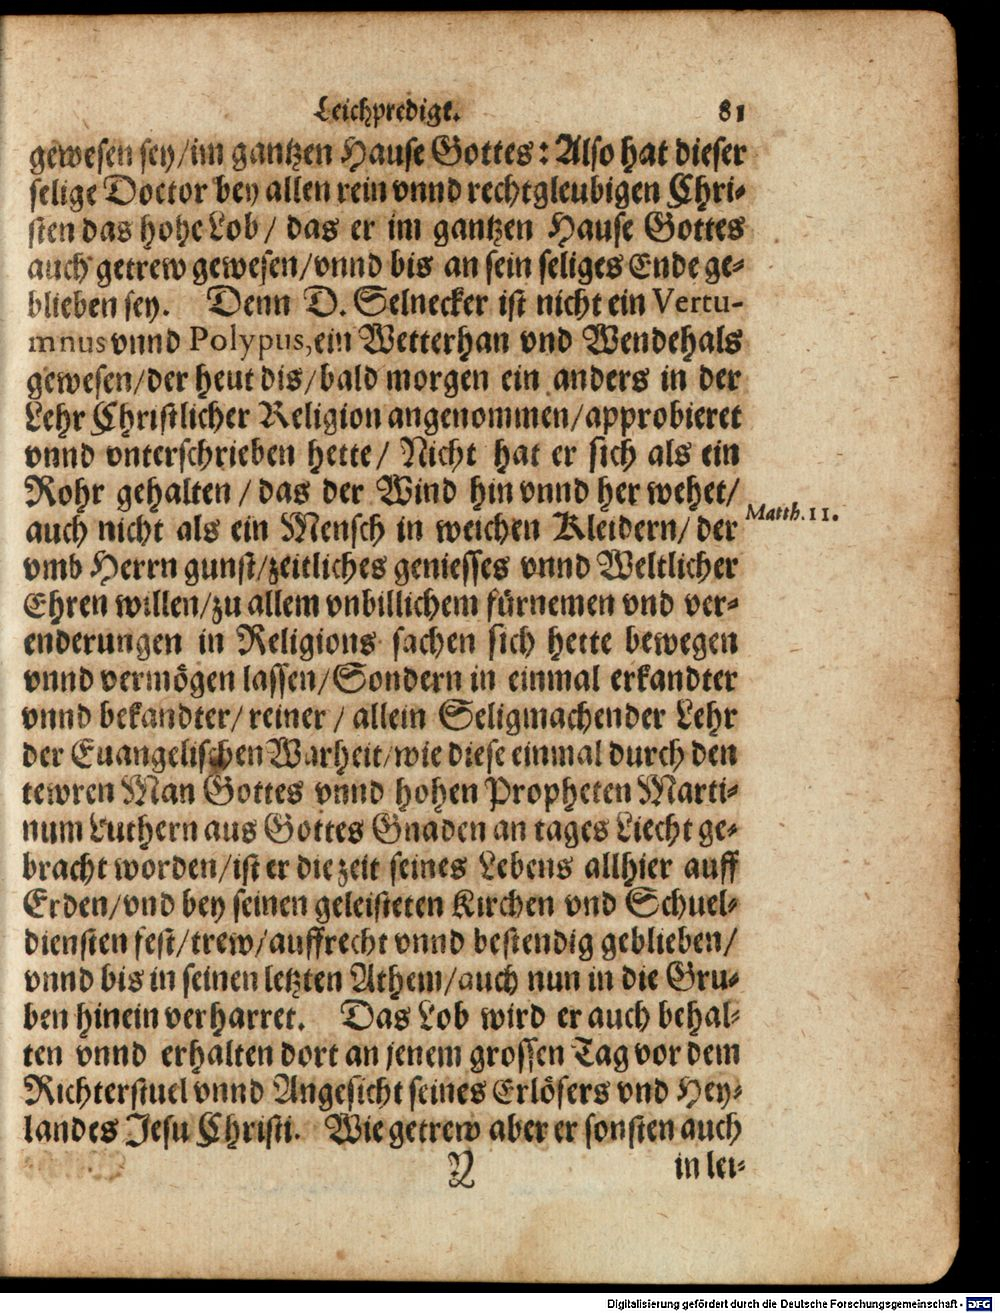 Leichpredigt. 81
gewesen sey/im gantzen Hause Gottes: Also hat dieser
selige Doctor bey allen rein vnnd rechtgleubigen Chri-
sten das hohe Lob/ das er im gantzen Hause Gottes
auch getrew gewesen/vnnd bis an sein seliges Ende ge-
blieben sey. Denn D. Selnecker ist nicht ein Vertu-
mnus vnnd Polypus, ein Wetterhan vnd Wendehals
gewesen/der heut dis/bald morgen ein anders in der
Lehr Christlicher Religion angenommen/approbieret
vnnd vnterschrieben hette/ Nicht hat er sich als ein
Rohr gehalten/das der Wind hin vnnd her wehet/
auch nicht als ein Mensch in weichen Kleidern/der
Matth. 11.
vmb Herrn gunst/zeitliches geniesses vnnd Weltlicher
Ehren willen/zu allem vnbillichem fürnemen vnd ver-
enderungen in Religions sachen sich hette bewegen
vnnd vermögen lassen/Sondern in einmal erkandter
vnnd bekandter/reiner/allein Seligmachender Lehr
der Euangelischen Warheit/wie diese einmal durch den
tewren Man Gottes vnnd hohen Propheten Marti-
num Luthern aus Gottes Gnaden an tages Liecht ge-
bracht worden/ist er die zeit seines Lebens allhier auff
Erden/vnd bey seinen geleisteten Kirchen vnd Schuel-
diensten fest/trew/auffrecht vnnd bestendig geblieben/
vnnd bis in seinen letzten Athem/auch nun in die Gru-
ben hinein verharret. Das Lob wird er auch behal-
ten vnnd erhalten dort an jenem grossen Tag vor dem
Richterstuel vnnd Angesicht seines Erlösers vnd Hey-
landes Jesu Christi. Wie getrew aber er sonsten auch
Y in lei-
Digitalisierung gefördert durch die Deutsche Forschungsgemeinschaft - DFG